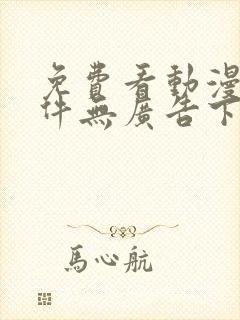 免費看動漫
件無廣告下
馬心航